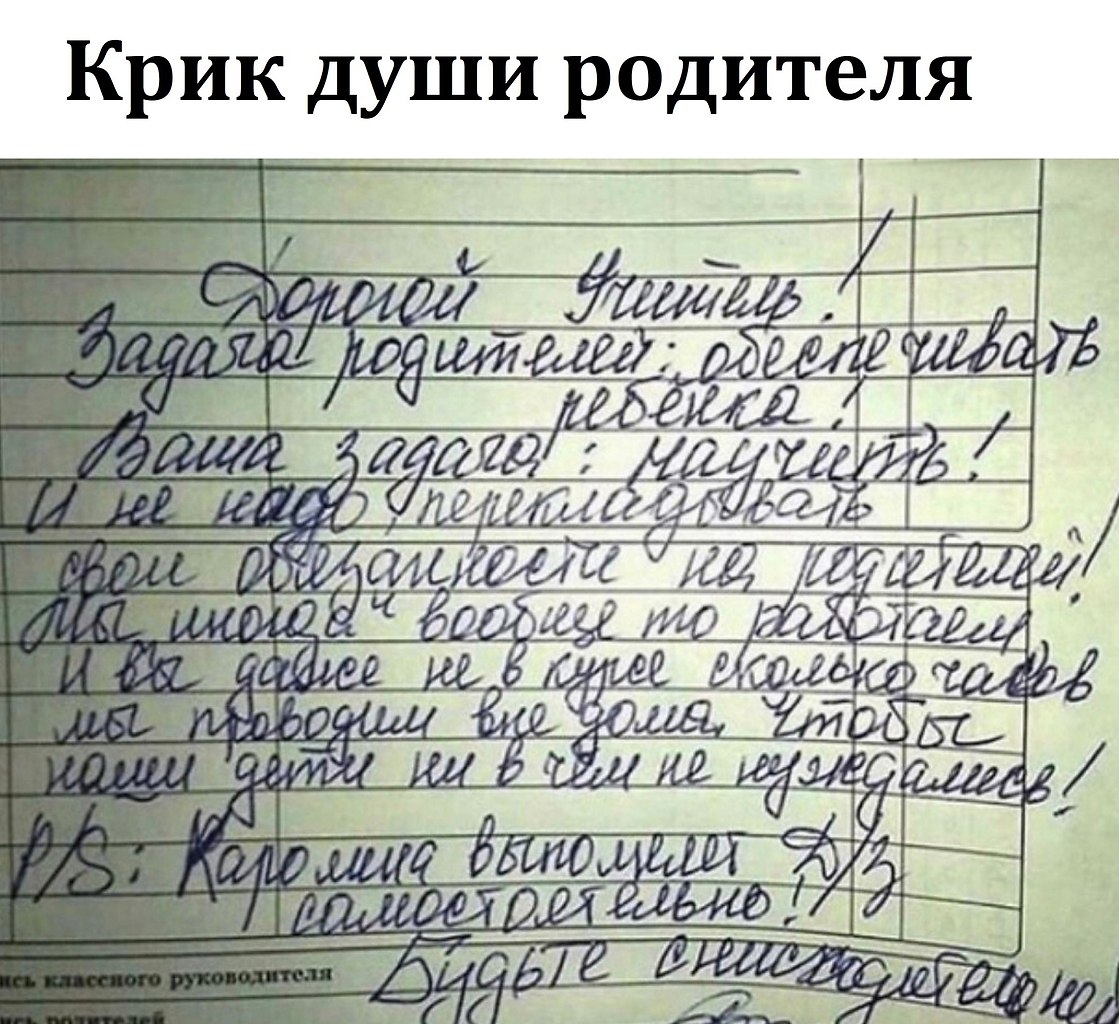 Крик души родителя
Дорогой Учитель!
Задача родителей: обеспечивать
ребёнка!
Ваша задача: научить!
И не надо перекладывать
свои обязанности на родителей!
Мы иногда вообще то работаем
И вы даже не в курсе сколько часов
мы проводим вне дома, Чтобы
наши дети ни в чём не нуждались!
P/S: Каролина выполняет Д/З
самостоятельно!
Будьте снисходительней
ись классного руководителя
ись родителей